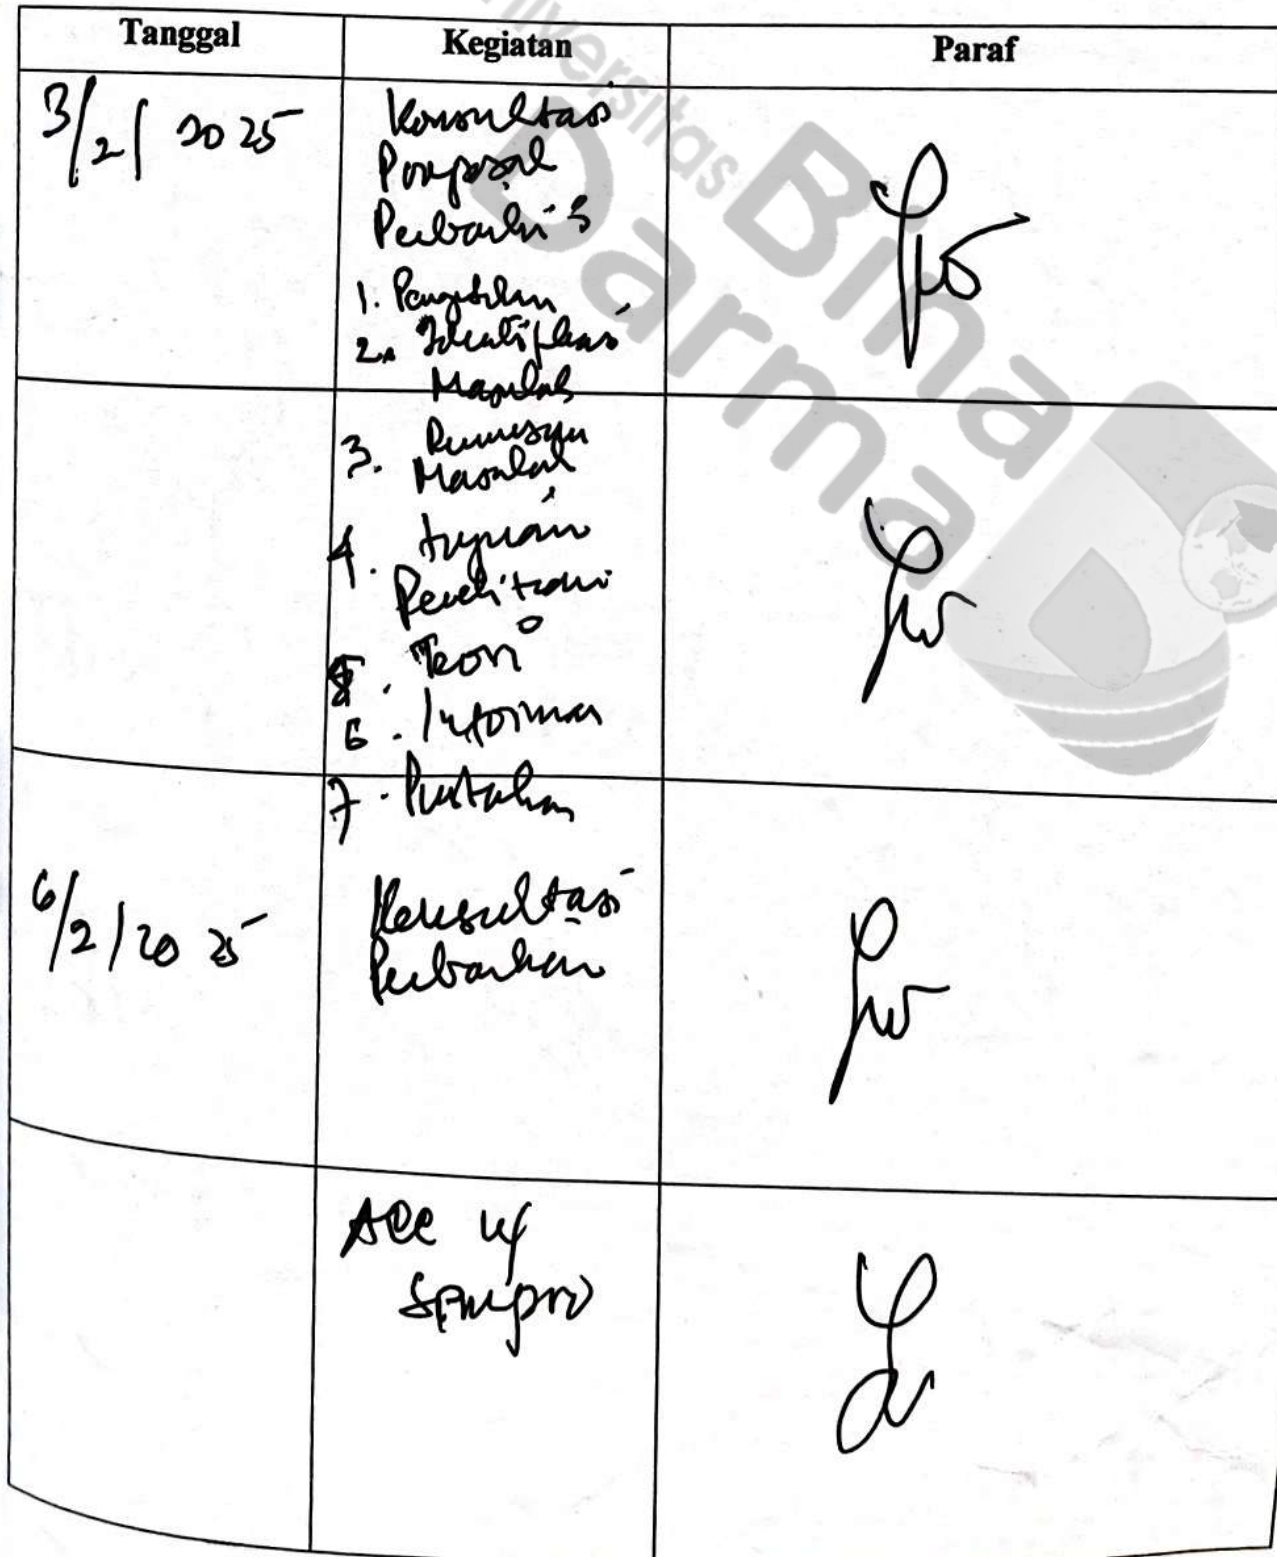 Tanggal Kegiatan Paraf
3/2/2025 Konsultasi
Proposal
1. Pengetikan
2. Identifikasi
Masalah
3. Rumusan
Masalah
4. tujuan
Penelitian
5. Teori
6. Informan
7. Pustaka
6/2/2025 Konsultasi
Perbaikan
ACC u/
Sempro
Universitas
Bina
Darma